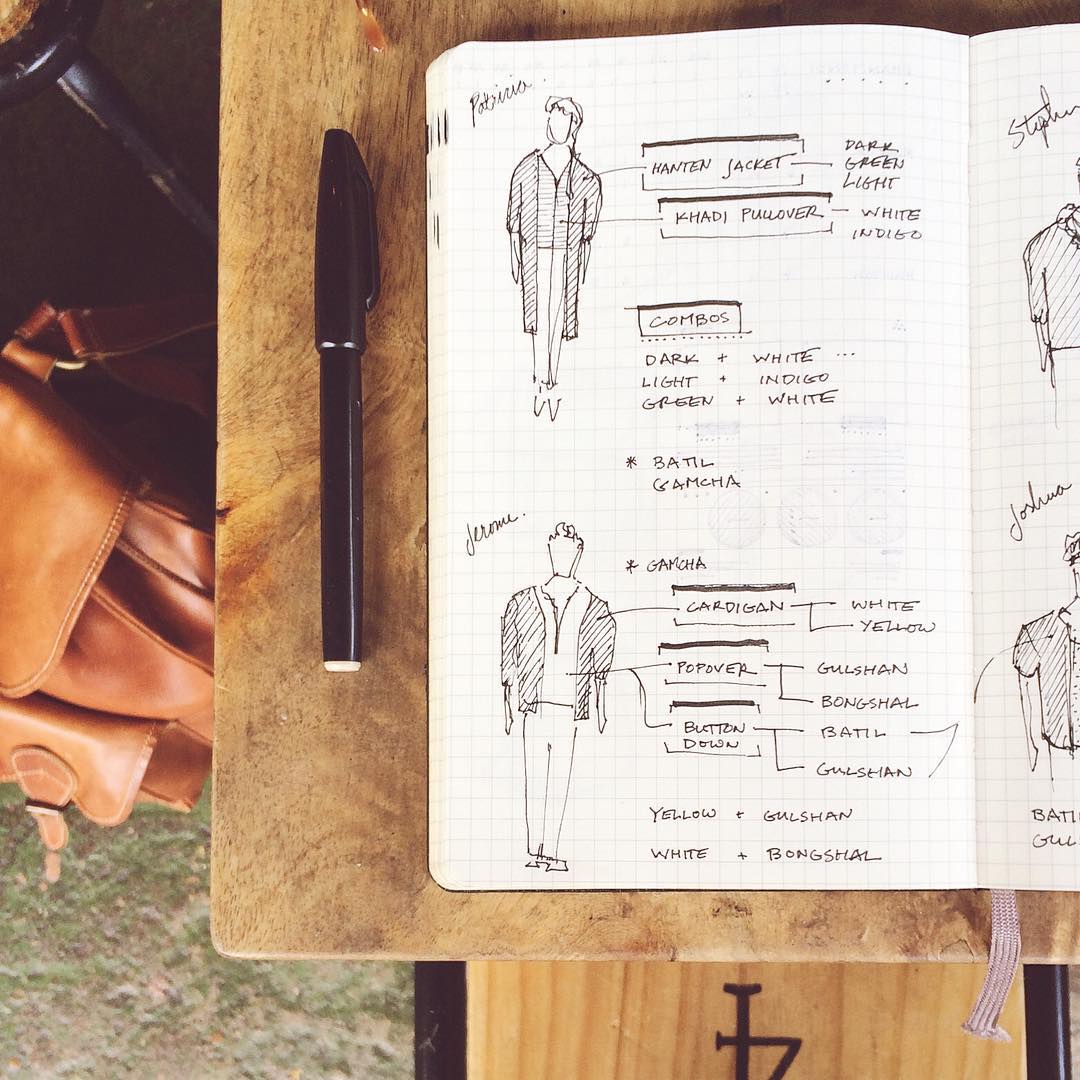 Patricia.
HANTEN JACKET
DARK
GREEN
LIGHT
KHADI PULLOVER
WHITE
INDIGO
COMBOS
DARK + WHITE ...
LIGHT + INDIGO
GREEN + WHITE
* BATIL
GAMCHA
Jerome.
* GAMCHA
CARDIGAN
WHITE
YELLOW
POPOVER
GULSHAN
BONGSHAL
BUTTON
DOWN
BATIL
GULSHAN
YELLOW + GULSHAN
WHITE + BONGSHAL
Joshua